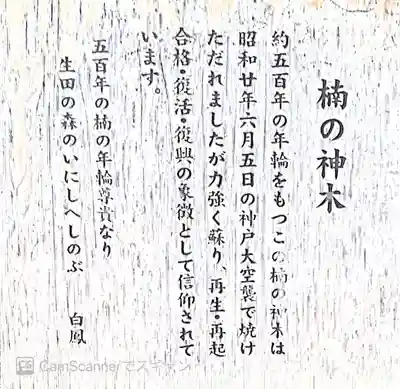 楠の神木
約五百年の年輪をもつこの楠の神木は
昭和廿年六月五日の神戸大空襲で焼け
ただれましたが力強く蘇り、再生・再起
合格・復活・復興の象徴として信仰されて
います。
五百年の楠の年輪尊貴なり
生田の森のいにしへしのぶ
白鳳
CamScannerでスキャン